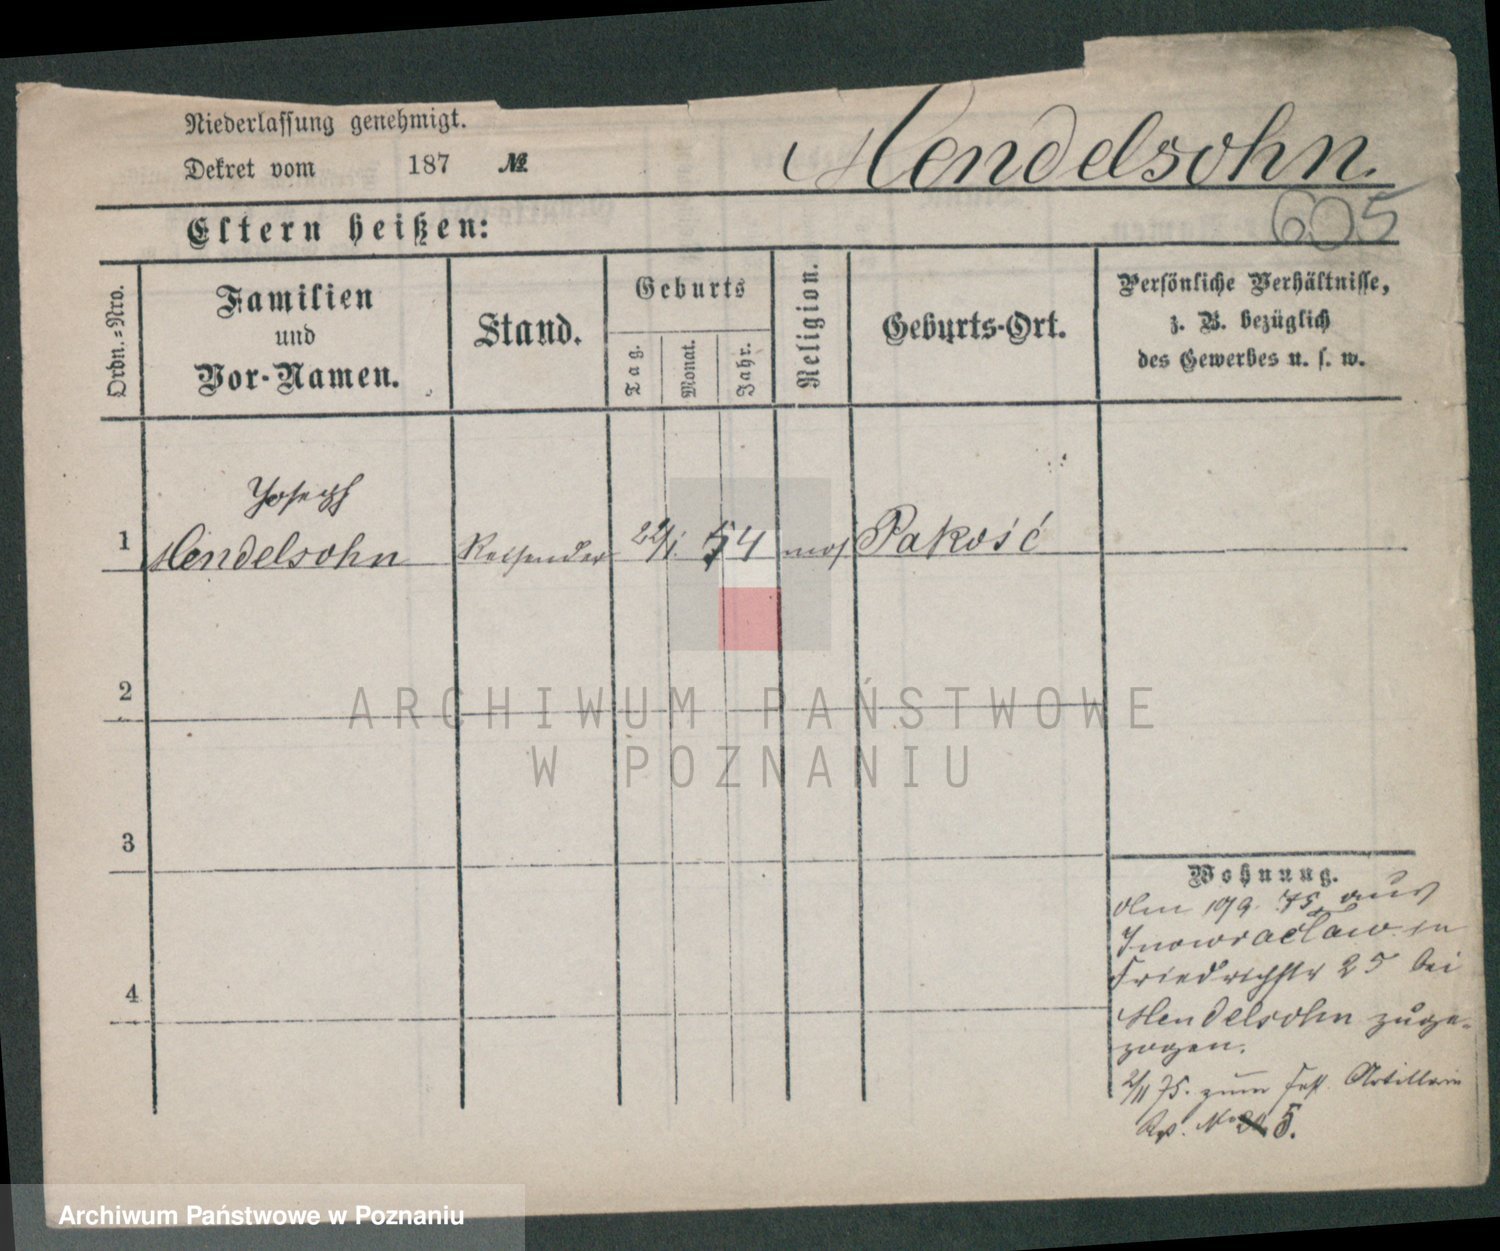 Niederlassung genehmigt.
Dekret vom 187 №
Mendelsohn.
605
Eltern heißen:
Ordn.-Nro.
Familien
und
Vor-Namen.
Stand.
Geburts
Tag.
Monat.
Jahr.
Religion.
Geburts-Ort.
Persönliche Verhältnisse,
z. B. bezüglich
des Gewerbes u. s. w.
Joseph
1 Mendelsohn Reisender 22/1. 54 mos Pakość
2
3
4
Wohnung.
75. aus
Inowraclaw in
Friedrichstr 25 bei
Mendelsohn zuge-
zogen.
2/11 75. zum Fest. Artillerie
5.
ARCHIWUM PAŃSTWOWE
W POZNANIU
Archiwum Państwowe w Poznaniu